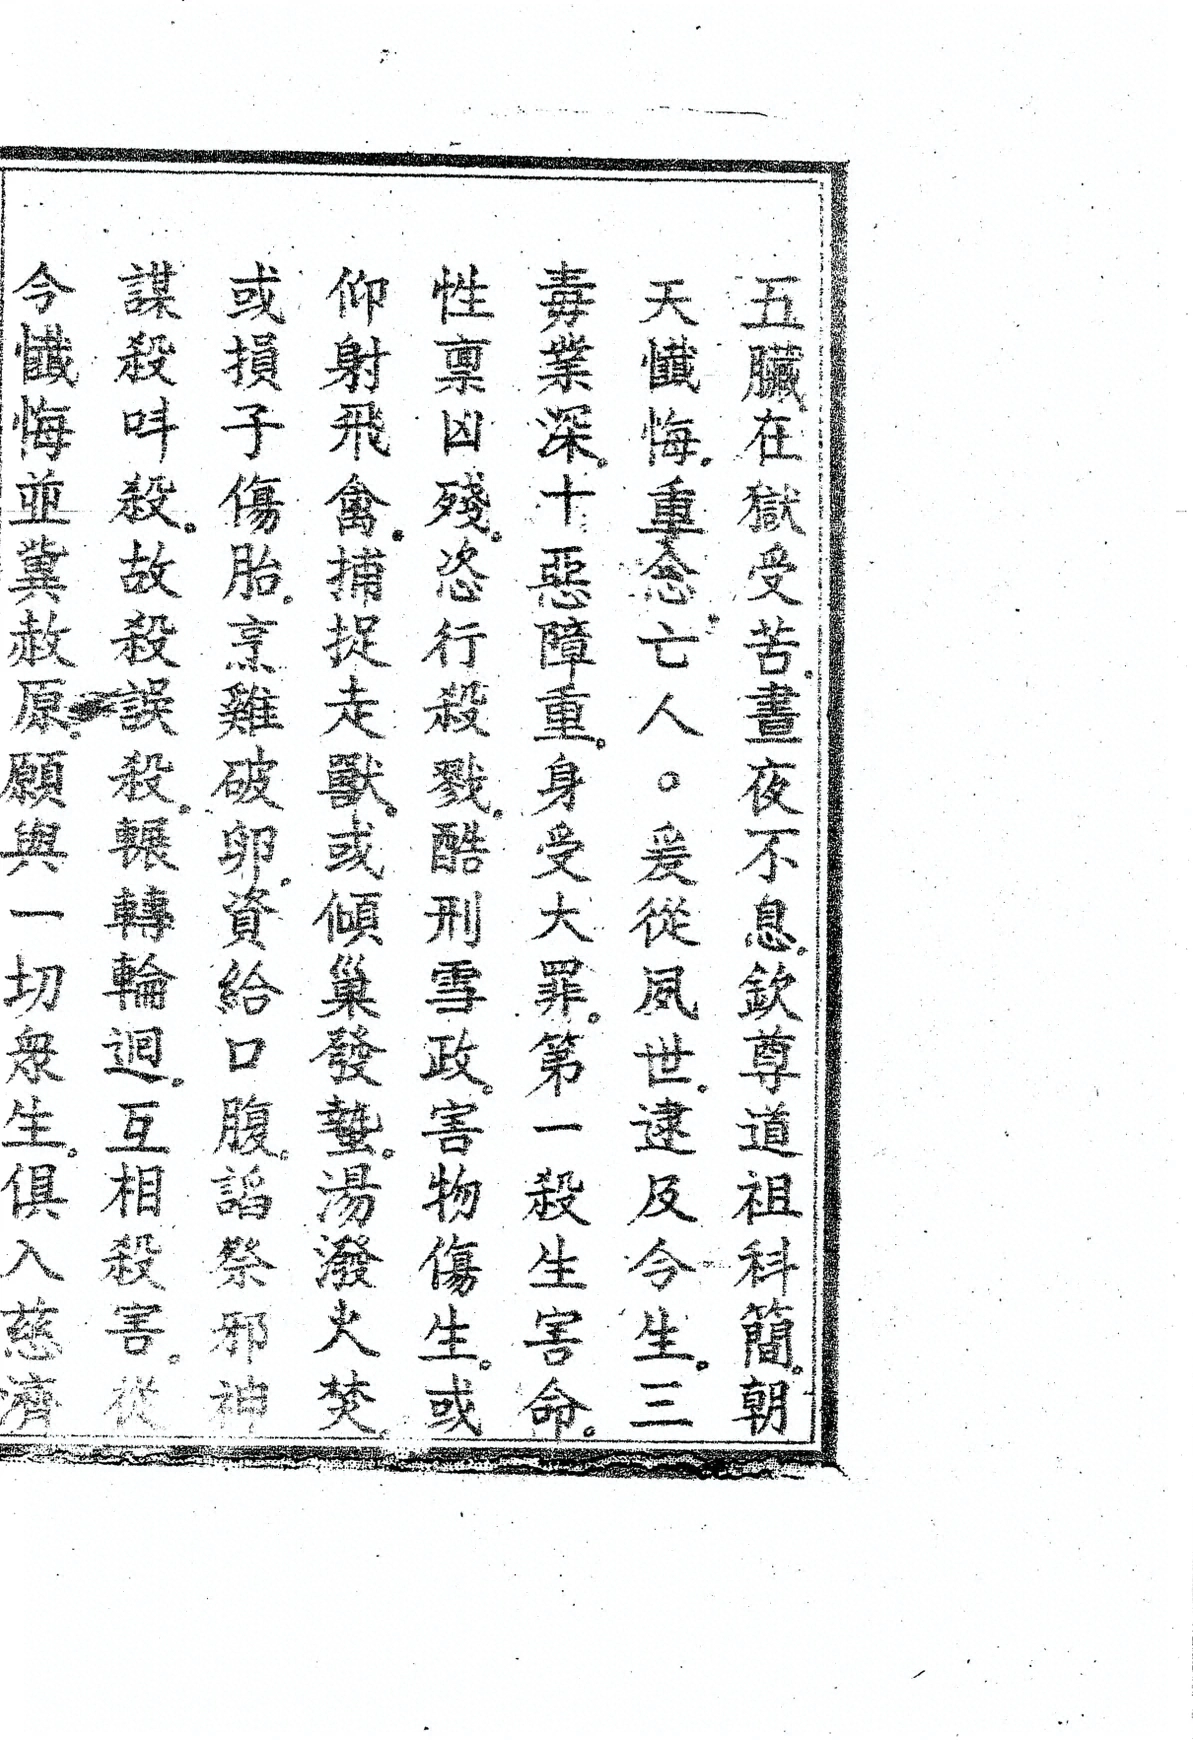 五臟在獄受苦。晝夜不息。欽尊道祖科簡。朝
天懺悔。重念。亡人○爰從夙世。逮及今生。三
毒業深。十惡障重。身受大罪。第一殺生害命。
性禀凶殘。恣行殺戮。酷刑雪政。害物傷生。或
仰射飛禽。捕捉走獸。或傾巢發蟄。湯潑火焚。
或損子傷胎。烹雞破卵。資給口腹。謟祭邪神
謀殺呌殺。故殺誤殺。輾轉輪迴。互相殺害。從
今懺悔並冀赦原。願與一切衆生。俱入慈濟